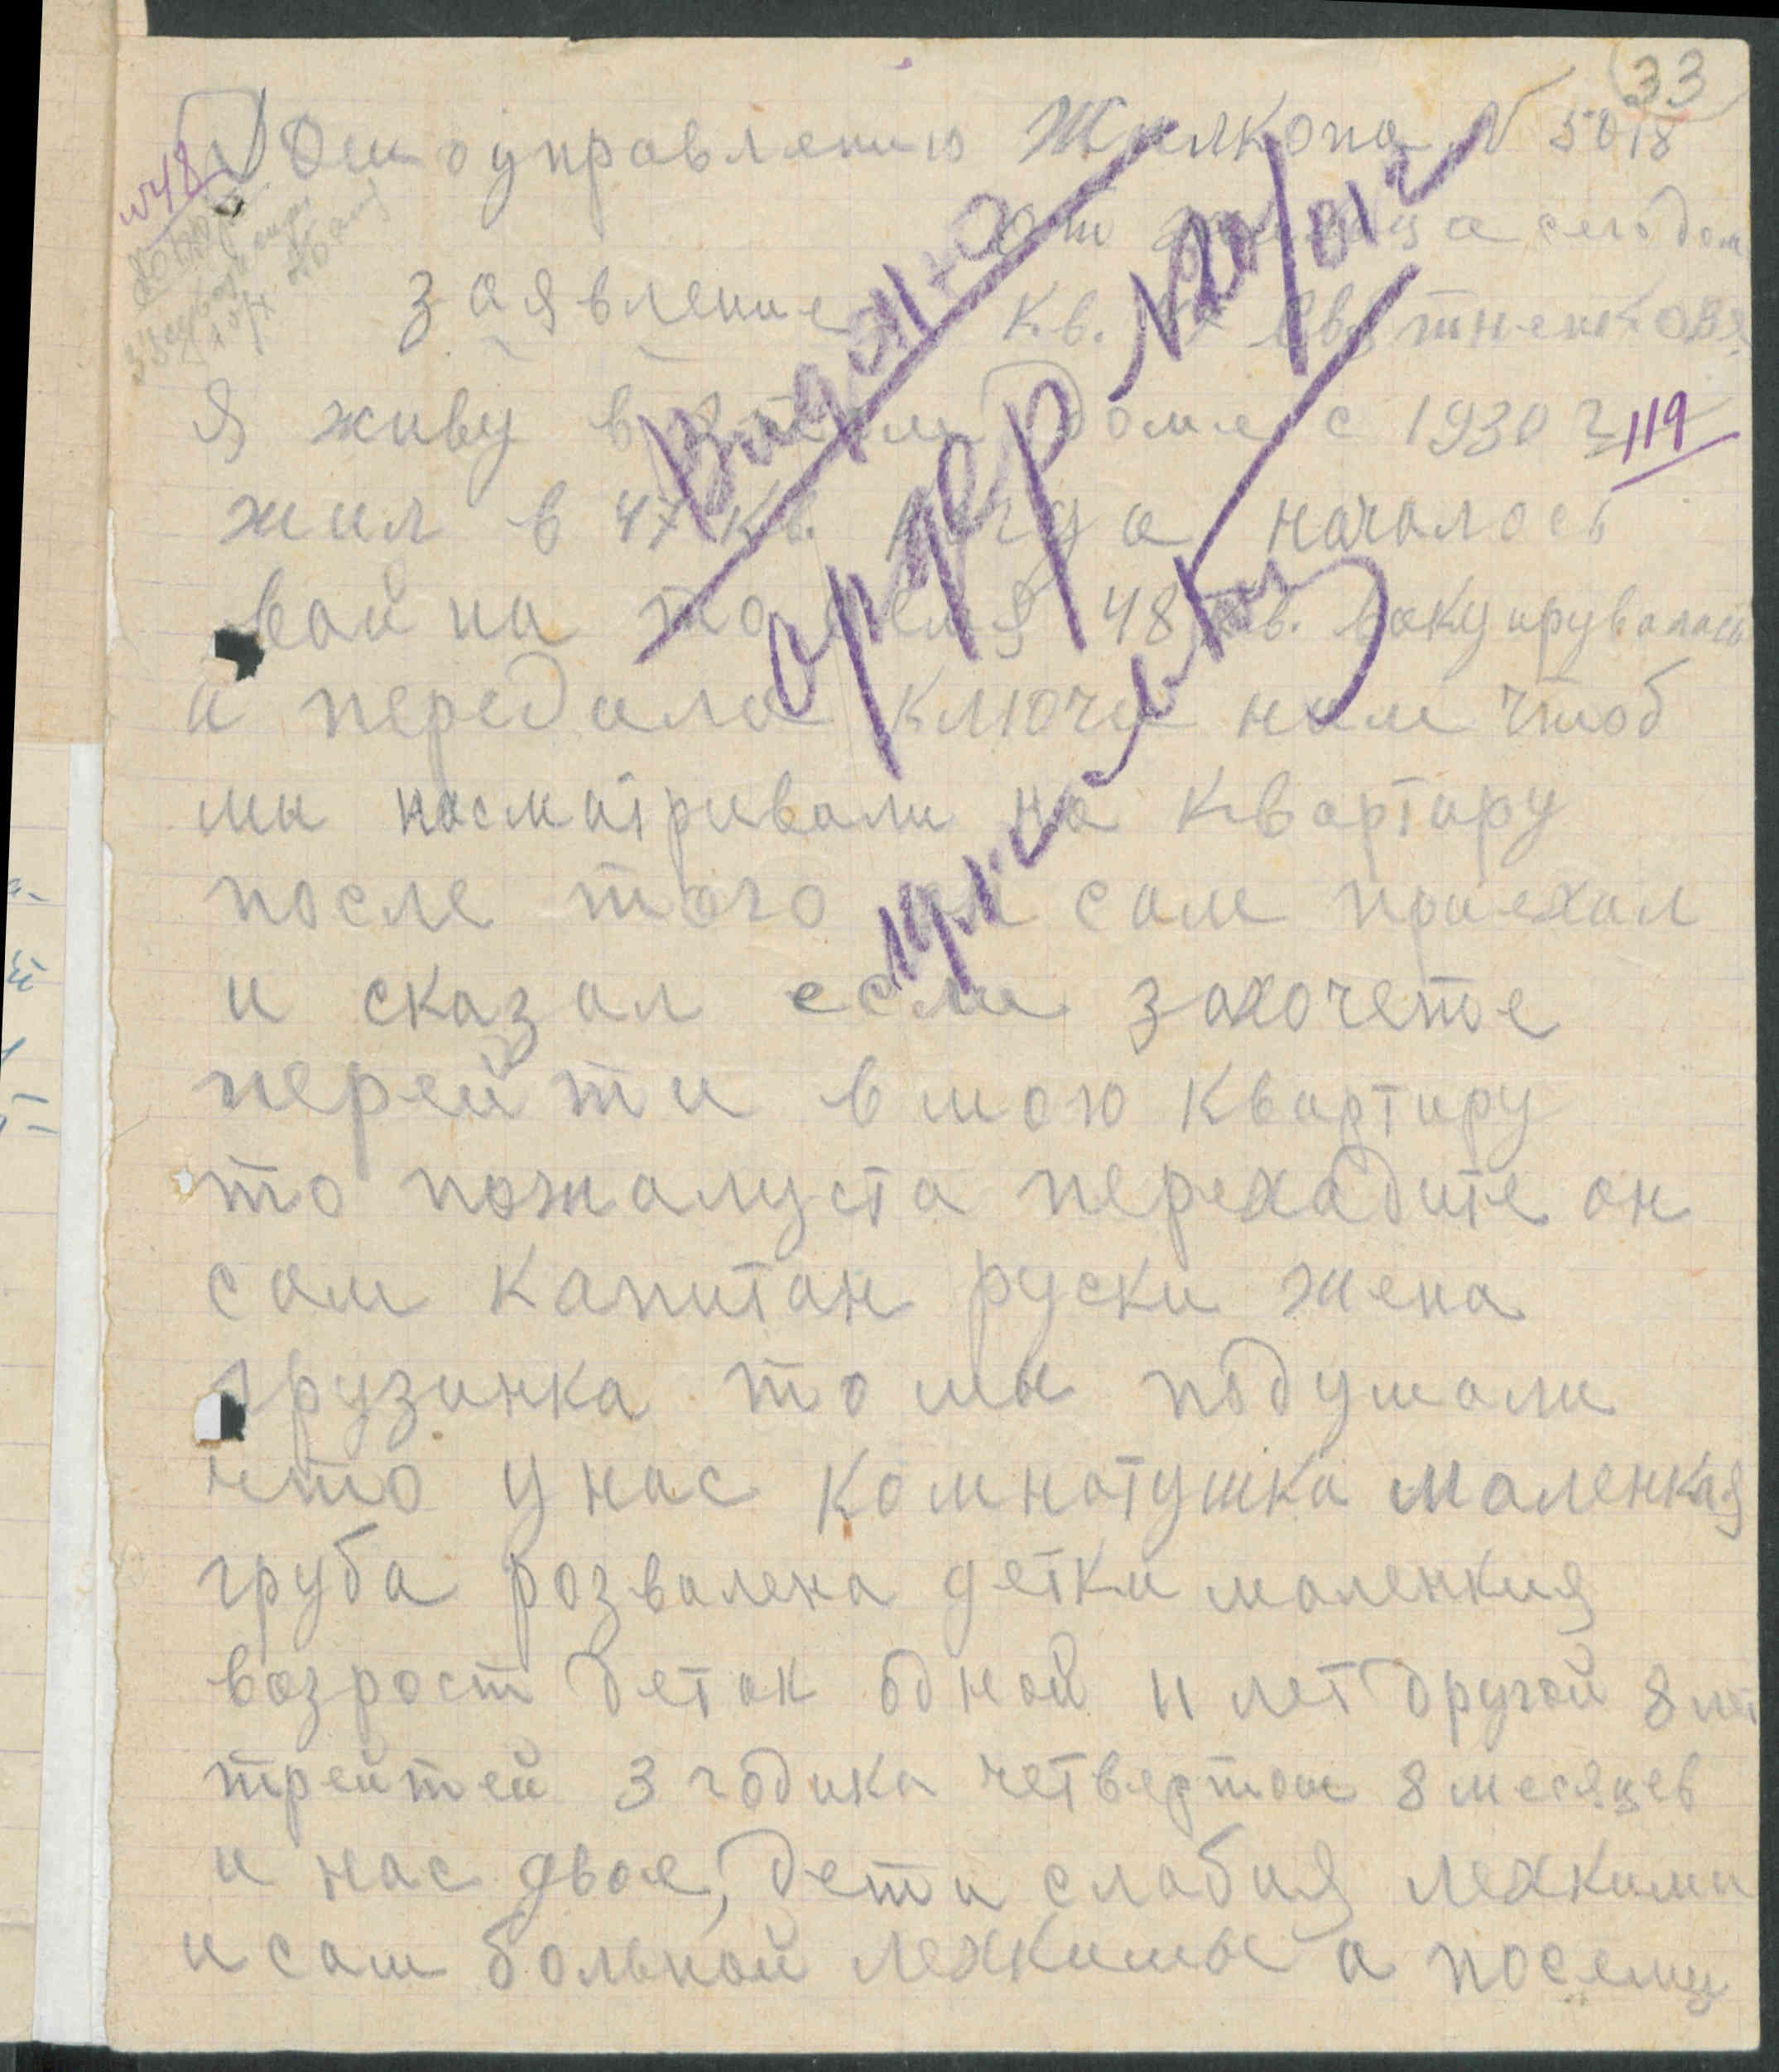 33
Домоуправлению Жилкопа N 5018
N48
от жильца сего дома
заявление
Кв. 47 Евтушенкова
Я живу в этом доме с 1930 г.
119
жил в 47 кв. когда началось
вайна то с 48 кв. вакуировалась
и передала ключи нам чтоб
мы насматривали на квартиру
после того он сам приехал
и сказал если захочете
перейти в мою квартиру
то пожалуста переходите он
сам капитан руски жена
грузинка то мы подумали
что у нас комнатушка маленкая
груба розвалена детки маленкия
возрост деток одной 11 лет другой 8 лет
трейтей 3 годика четвертом 8 месяцев
и нас двое, дети слабия лехкими
и сам больной лехкимы а посему
Видано
ордер N20/01г